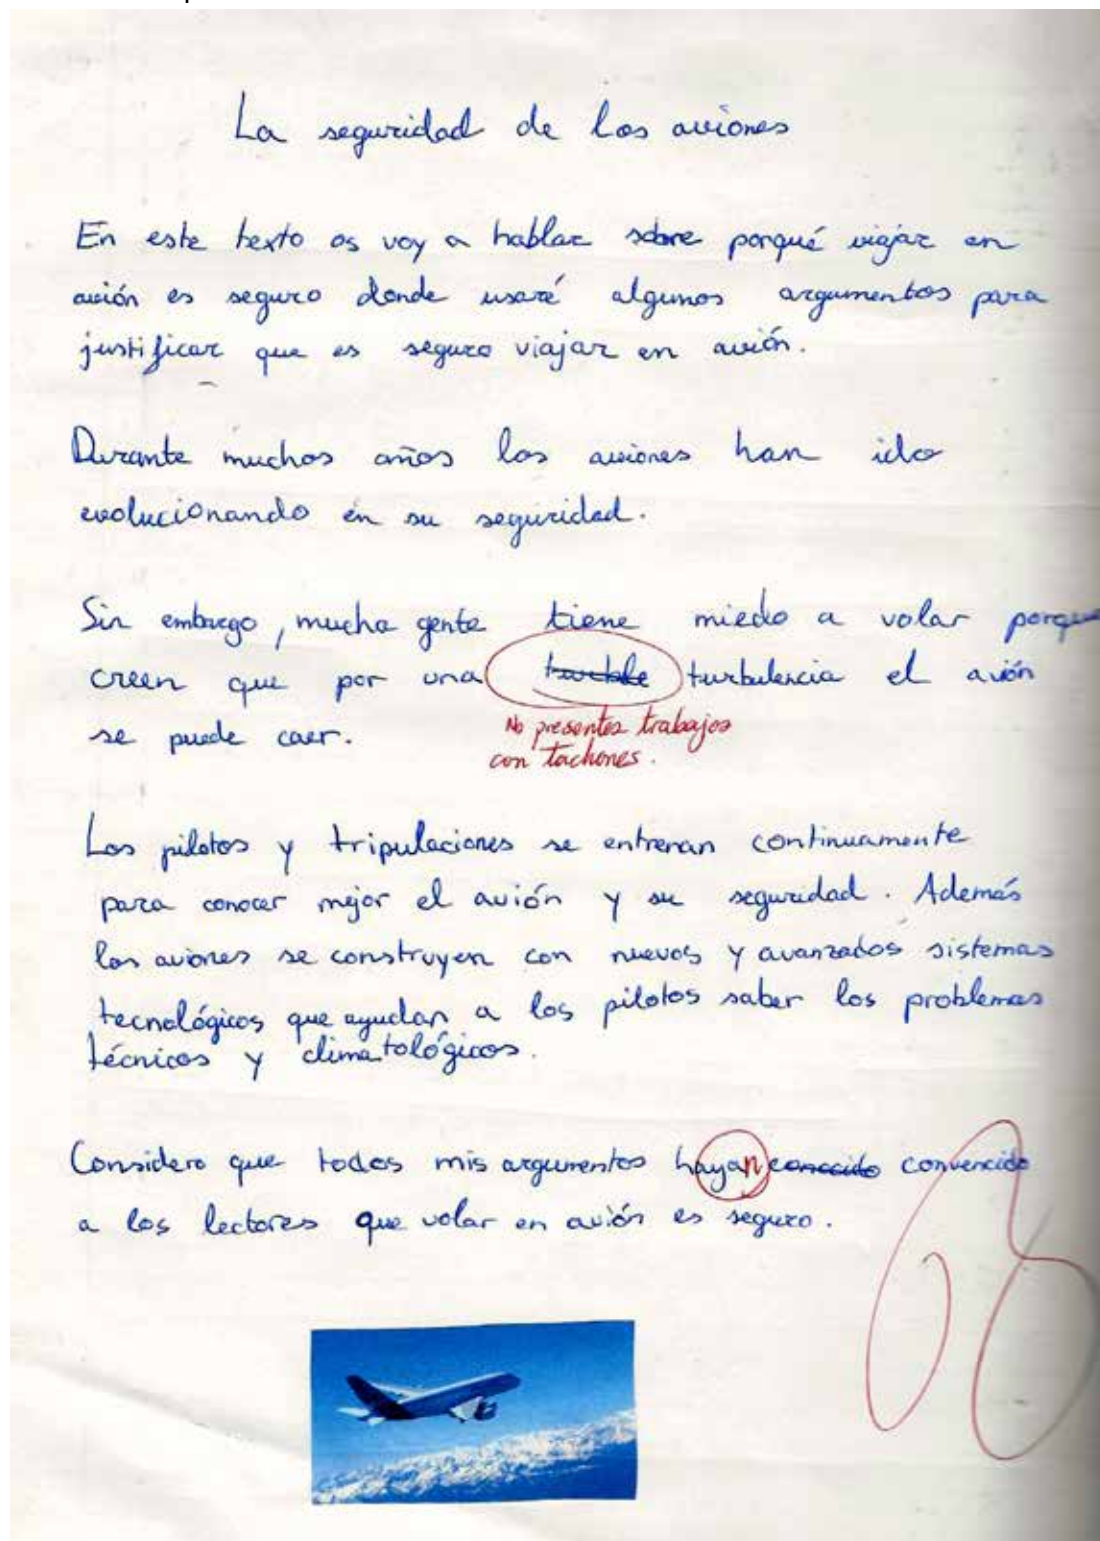 La seguridad de los aviones
En este texto os voy a hablar sobre porqué viajar en
avión es seguro donde usaré algunos argumentos para
justificar que es seguro viajar en avión.
Durante muchos años los aviones han ido
evolucionando en su seguridad.
Sin embargo, mucha gente tiene miedo a volar porque
creen que por una turbulencia el avión
se puede caer.
No presentes trabajos
con tachones.
Los pilotos y tripulaciones se entrenan continuamente
para conocer mejor el avión y su seguridad. Además
los aviones se construyen con nuevos y avanzados sistemas
tecnológicos que ayudan a los pilotos saber los problemas
técnicos y climatológicos.
Considero que todos mis argumentos hayan convencido
a los lectores que volar en avión es seguro.